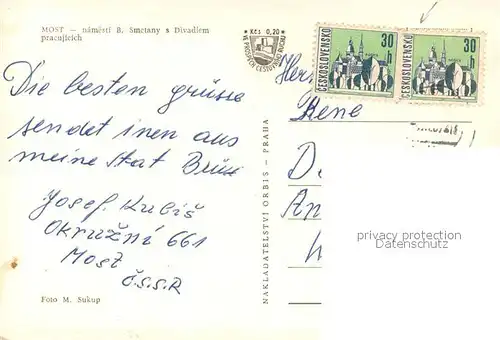 MOST — náměstí B. Smetany s Divadlem
pracujících
Kčs 0,20
VE PROSPĚCH CESTOVNÍHO RUCHU
ČESKOSLOVENSKO 30 h
ČESKOSLOVENSKO 30 h
Herz
Rene
Die besten grüsse
sendet inen aus
meine Stat Brüx
Josef Kubiš
Okružní 661
Most
Č.S.S.R
Foto M. Sukup
NAKLADATELSTVÍ ORBIS - PRAHA
D
An
privacy protection
Datenschutz